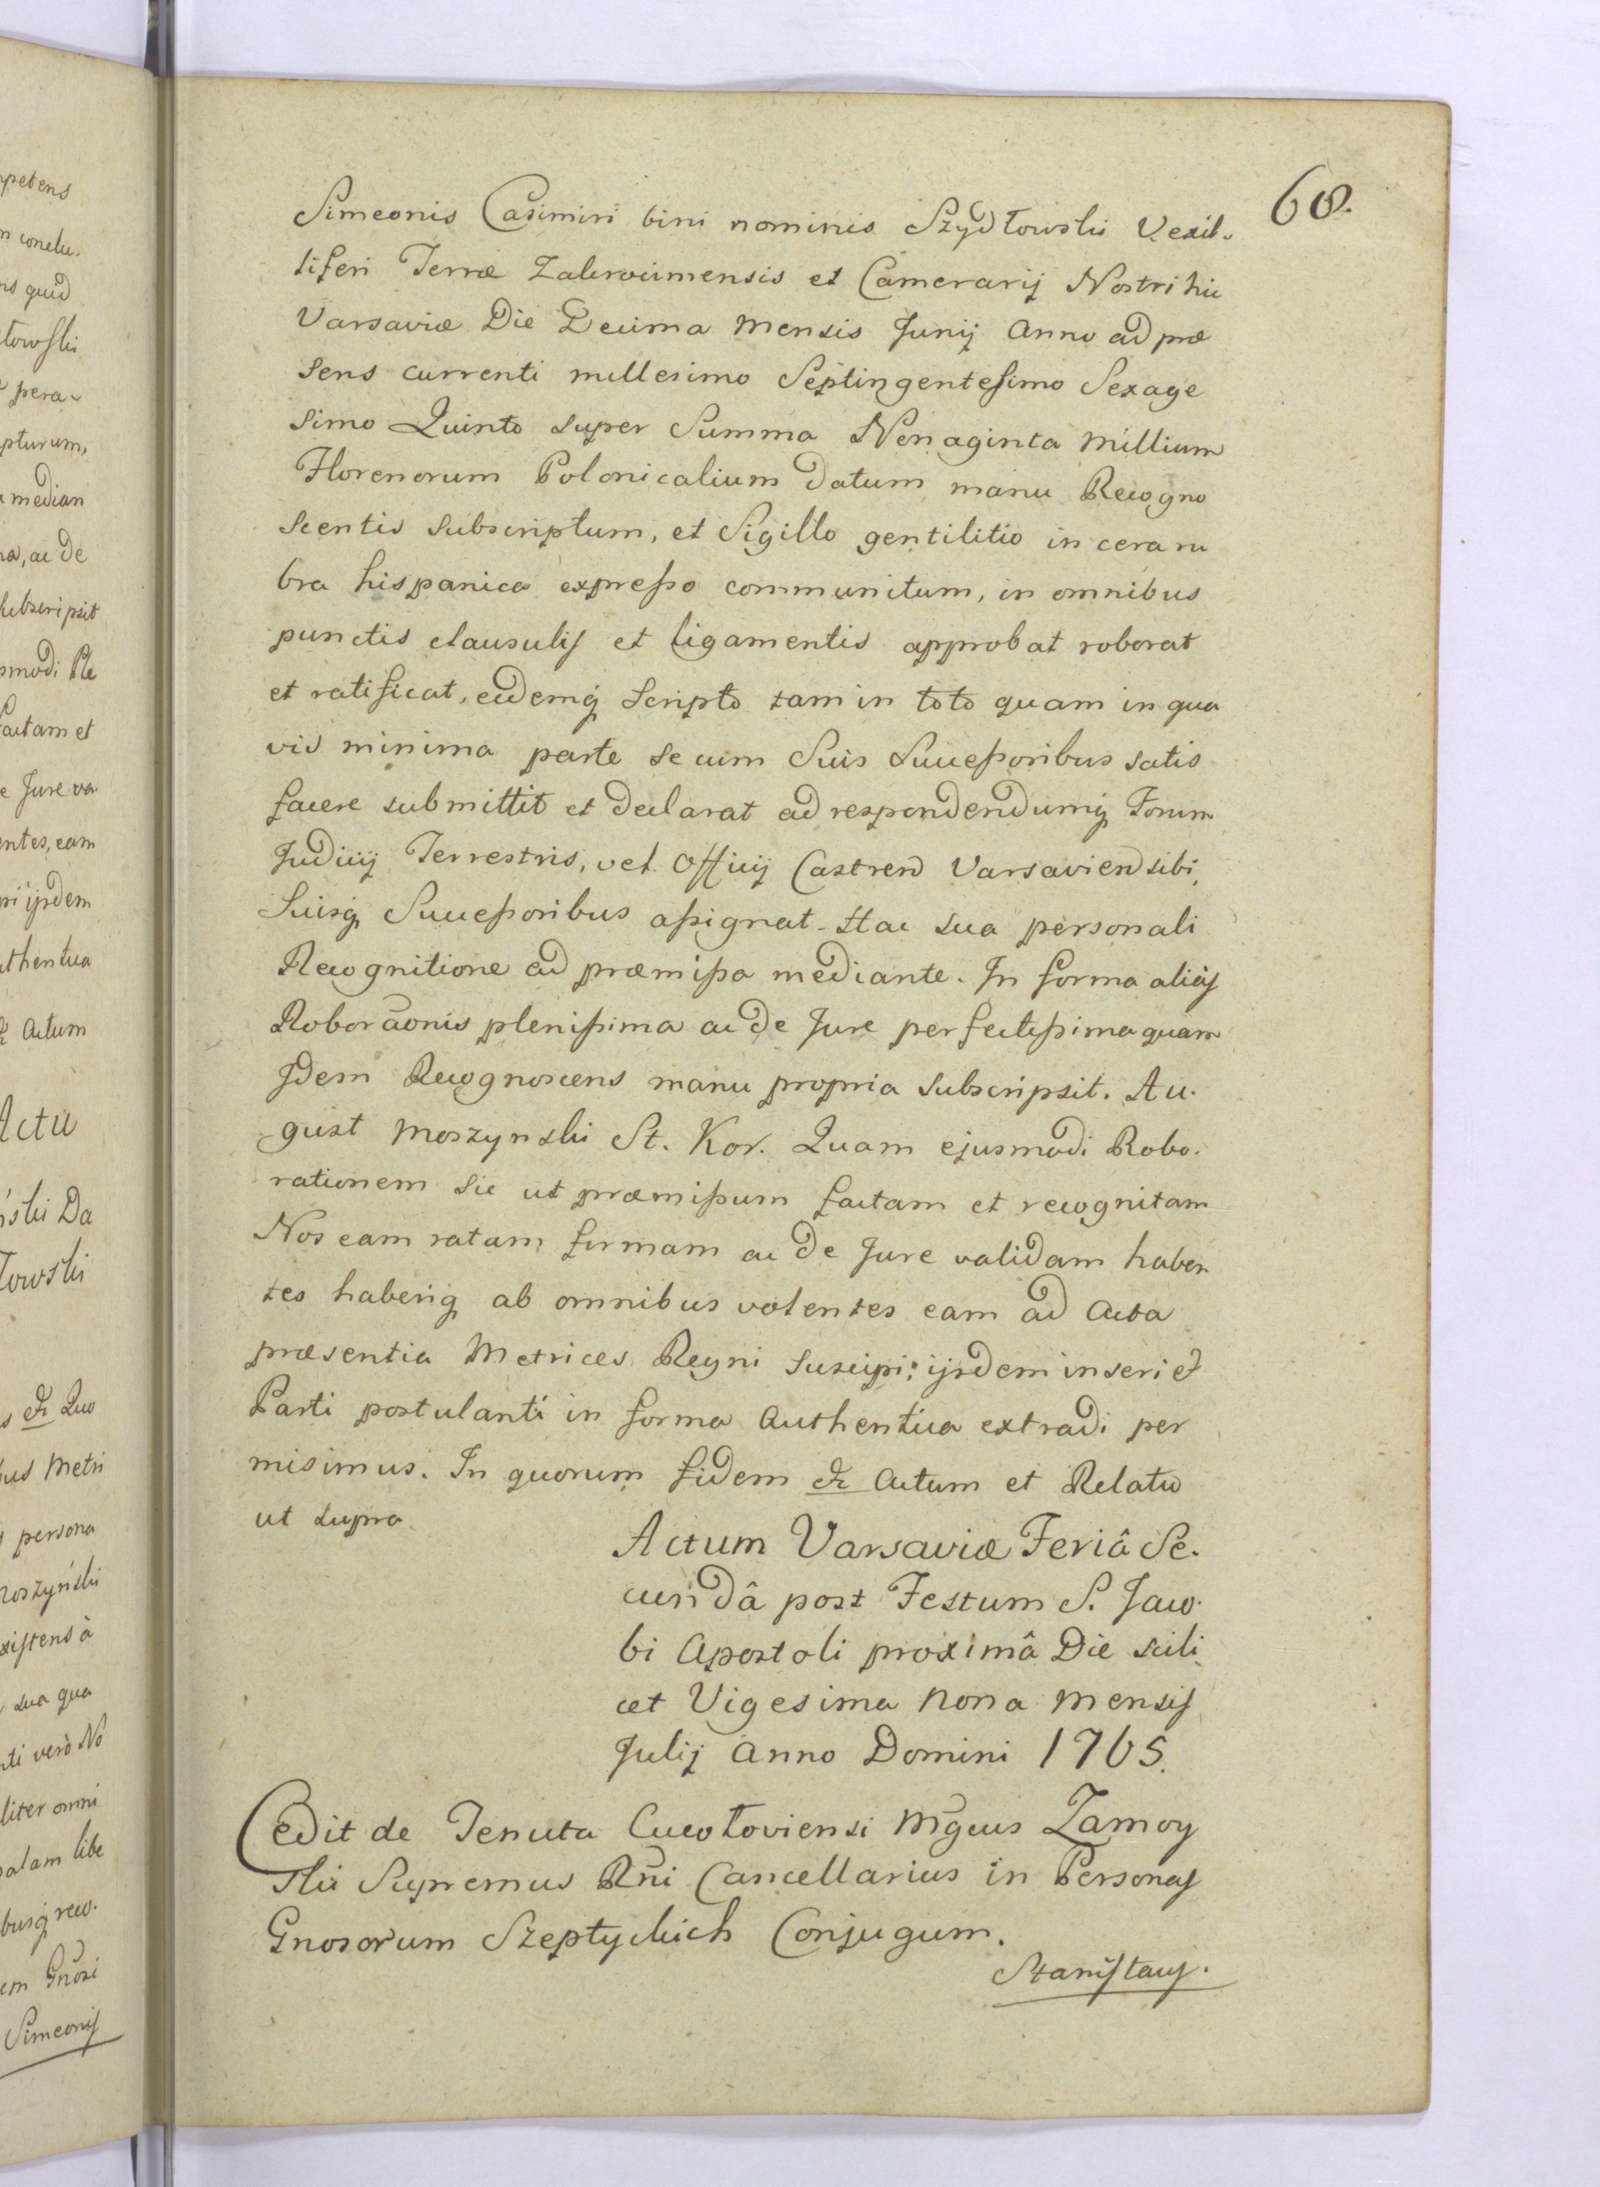 petens
n conclu.
ns quid
towski
pera-
pturum,
median
na, ac de
subscripsit
smodi Ro
factam et
e Jure va
entes, eam
pi ijsdem
uthentica
& Actum
Actu
ski Da
Towski
s & Quo
bus Metri
s persona
Moszyński
xistens à
sua qua
nti verò No
liter omni
palam libe
busq reco.
em Gnosi
Simeonis
68.
Simeonis Casimiri bini nominis Szydłowski Vexil-
liferi Terræ Zakrocimensis et Camerarij Nostri hic
Varsaviæ Die Decima mensis Junij Anno ad præ
sens currenti millesimo Septingentesimo Sexage
simo Quinto super Summa Nonaginta Millium
Florenorum Polonicalium datum manu Recogno
scentis subscriptum, et Sigillo gentilitio in cera ru
bra hispanica expresso communitum, in omnibus
punctis clausulis et ligamentis approbat roborat
et ratificat, eidemq scripto tam in toto quam in qua
vis minima parte se cum Suis Successoribus satis
facere submittit et declarat ad respondendumq Forum
Judicij Terrestris, vel Officij Castren Varsavien sibi,
Suisq Successoribus assignat. Hac sua personali
Recognitione ad præmissa mediante. In forma alias
Roboraonis plenissima ac de Jure perfectissima quam
Idem Recognoscens manu propria subscripsit. Au-
gust Moszynski St. Kor. Quam ejusmodi Robo-
rationem sic ut præmissum factam et recognitam
Nos eam ratam firmam ac de Jure validam haben
tes haberiq ab omnibus volentes eam ad Acta
præsentia Metrices Regni suscipi; ijsdem inseri et
Parti postulanti in forma Authentica extradi per
misimus. In quorum fidem & Actum et Relatio
ut supra.
Actum Varsaviæ Feriâ Se-
cundâ post Festum S. Jaco-
bi Apostoli proximâ Die scili
cet Vigesima nona mensis
Julij Anno Domini 1765.
Cedit de Tenuta Cucołoviensi Mgcus Zamoy
ski Supremus Rni Cancellarius in Personas
Gnosorum Szeptyckich Conjugum.
Stanislaus.